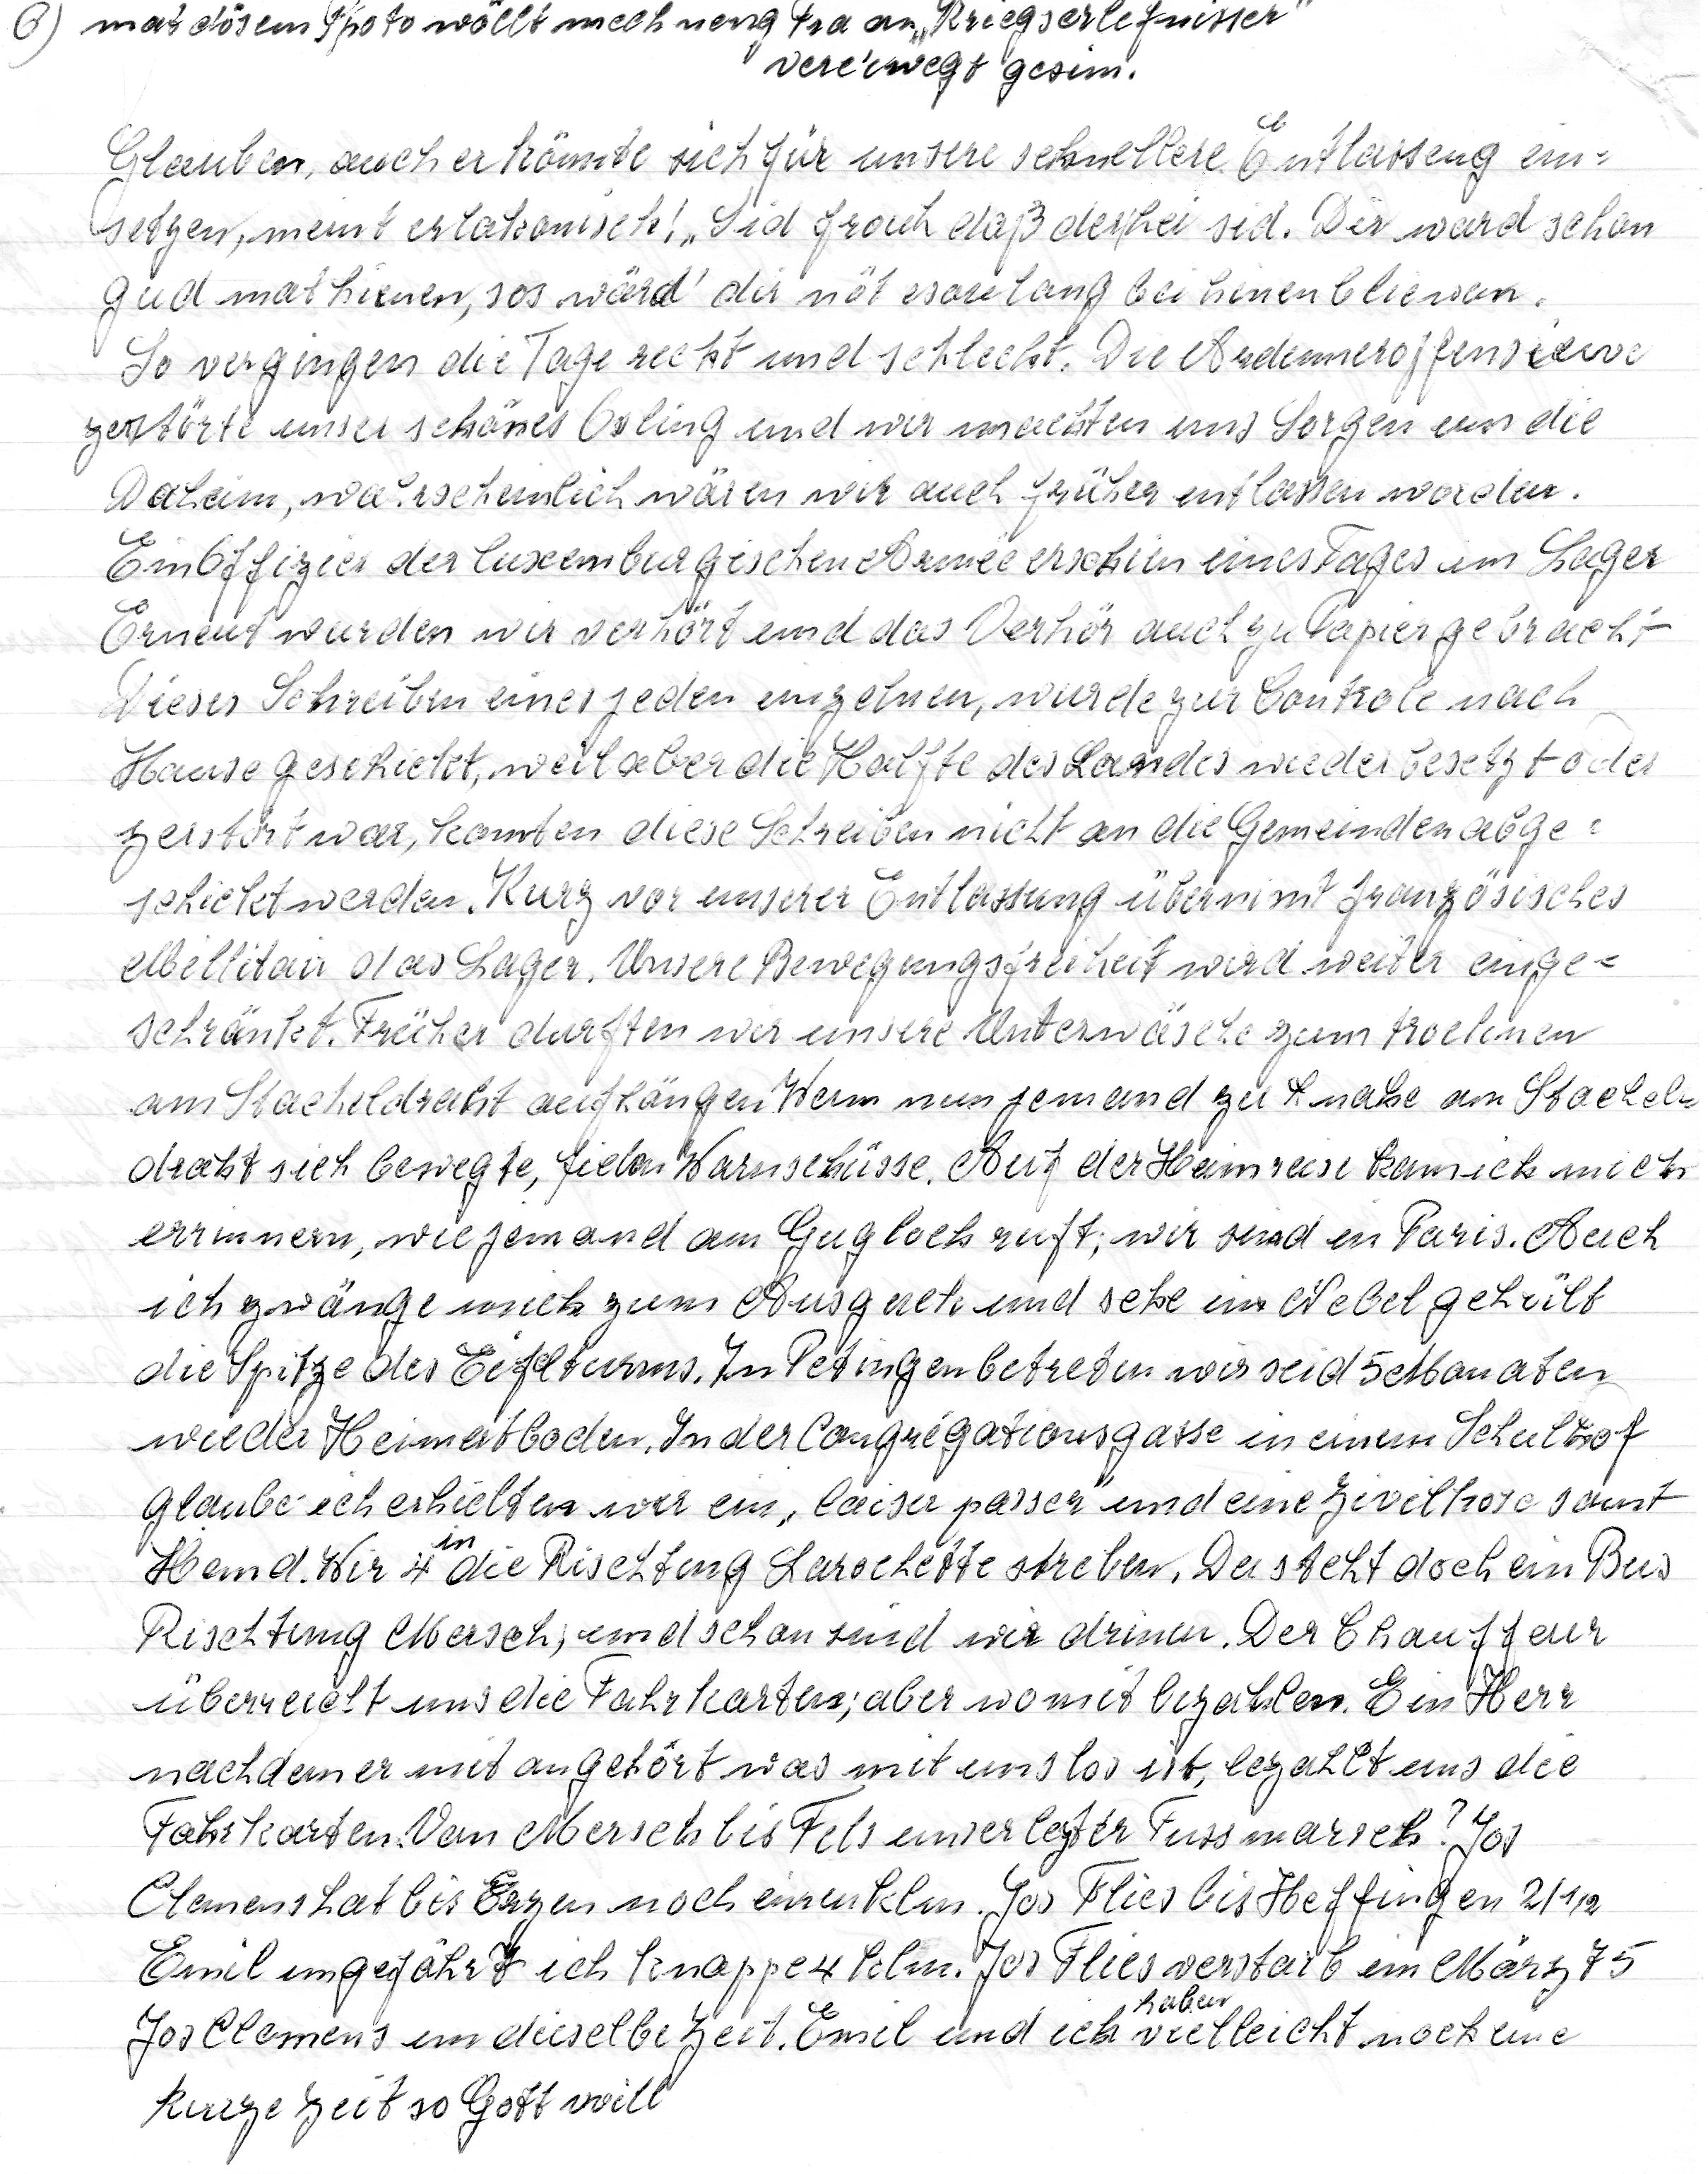 6) mat dösem Photo wöllt mech meng Fra an "Kriegserlefnisser"
vereiwegt gesim.
Glauben, auch er könnte sich für unsere schnellere Entlasseng ein=
setzen, meint er lakonisch! "Sid frouh daß der hei sid. Dir ward schon
gud mat hienen, sos wärd' dir nöt esou lang bei hinen bliewen.
So vergingen die Tage recht und schlecht. Die Ardenneroffensieve
zerstörte unser schönes Ösling und wir machten uns Sorgen um die
Daheim, wahrscheinlich wären wir auch früher entlassen worden.
Ein Offizier der luxemburgischen Armee erschien eines Tages im Lager
Erneut wurden wir verhört und das Verhör auch zu Papier gebracht
Dieses Schreiben eines jeden einzelnen, wurde zur Controle nach
Hause geschickt, weil aber die Hälfte des Landes wieder besetzt oder
zerstört war, konnten diese Schreiben nicht an die Gemeinden abge=
schickt werden. Kurz vor unserer Entlassung übernimt französisches
Millitair das Lager. Unsere Bewegungsfreiheit wird weiter einge=
schränkt. Früher durften wir unsere Unterwäsche zum trocknen
am Stacheldraht aufhängen Wenn nun jemand zu nahe am Stachel=
draht sich bewegte, fielen Warnschüsse. Auf der Heimreise kann ich mich
errinnern, wie jemand am Gugloch ruft; wir sind in Paris. Auch
ich zwänge mich zum Ausguck und sehe im Nebel gehüllt
die Spitze des Eifelturms. In Petingen betreten wir seid 5 Monaten
wieder Heimatboden. In der Congregationsgasse in einem Schulhof
glaube ich erhielten wir ein "laiser passer" und eine Zivilhose samt
Hemd. Wir 4 in die Rischtung Larochette streben. Da steht doch ein Bus
Rischtung Mersch, und schon sind wir drinen. Der Chauffeur
überreicht uns die Fahrkarten; aber womit bezahlen. Ein Herr
nachdem er mit angehört was mit uns los ist, bezahlt uns die
Fahrkarten. Von Mersch bis Fels unser lezter Fussmarsch? Jos
Clemens hat bis Erzen noch einen klm. Jos Flies bis Heffingen 2 1/2
Emil ungefähr 7 ich knappe 4 klm. Jos Flies verstarb im März 75
Jos Clemens um dieselbe Zeit. Emil und ich haben vielleicht noch eine
kurze Zeit so Gott will